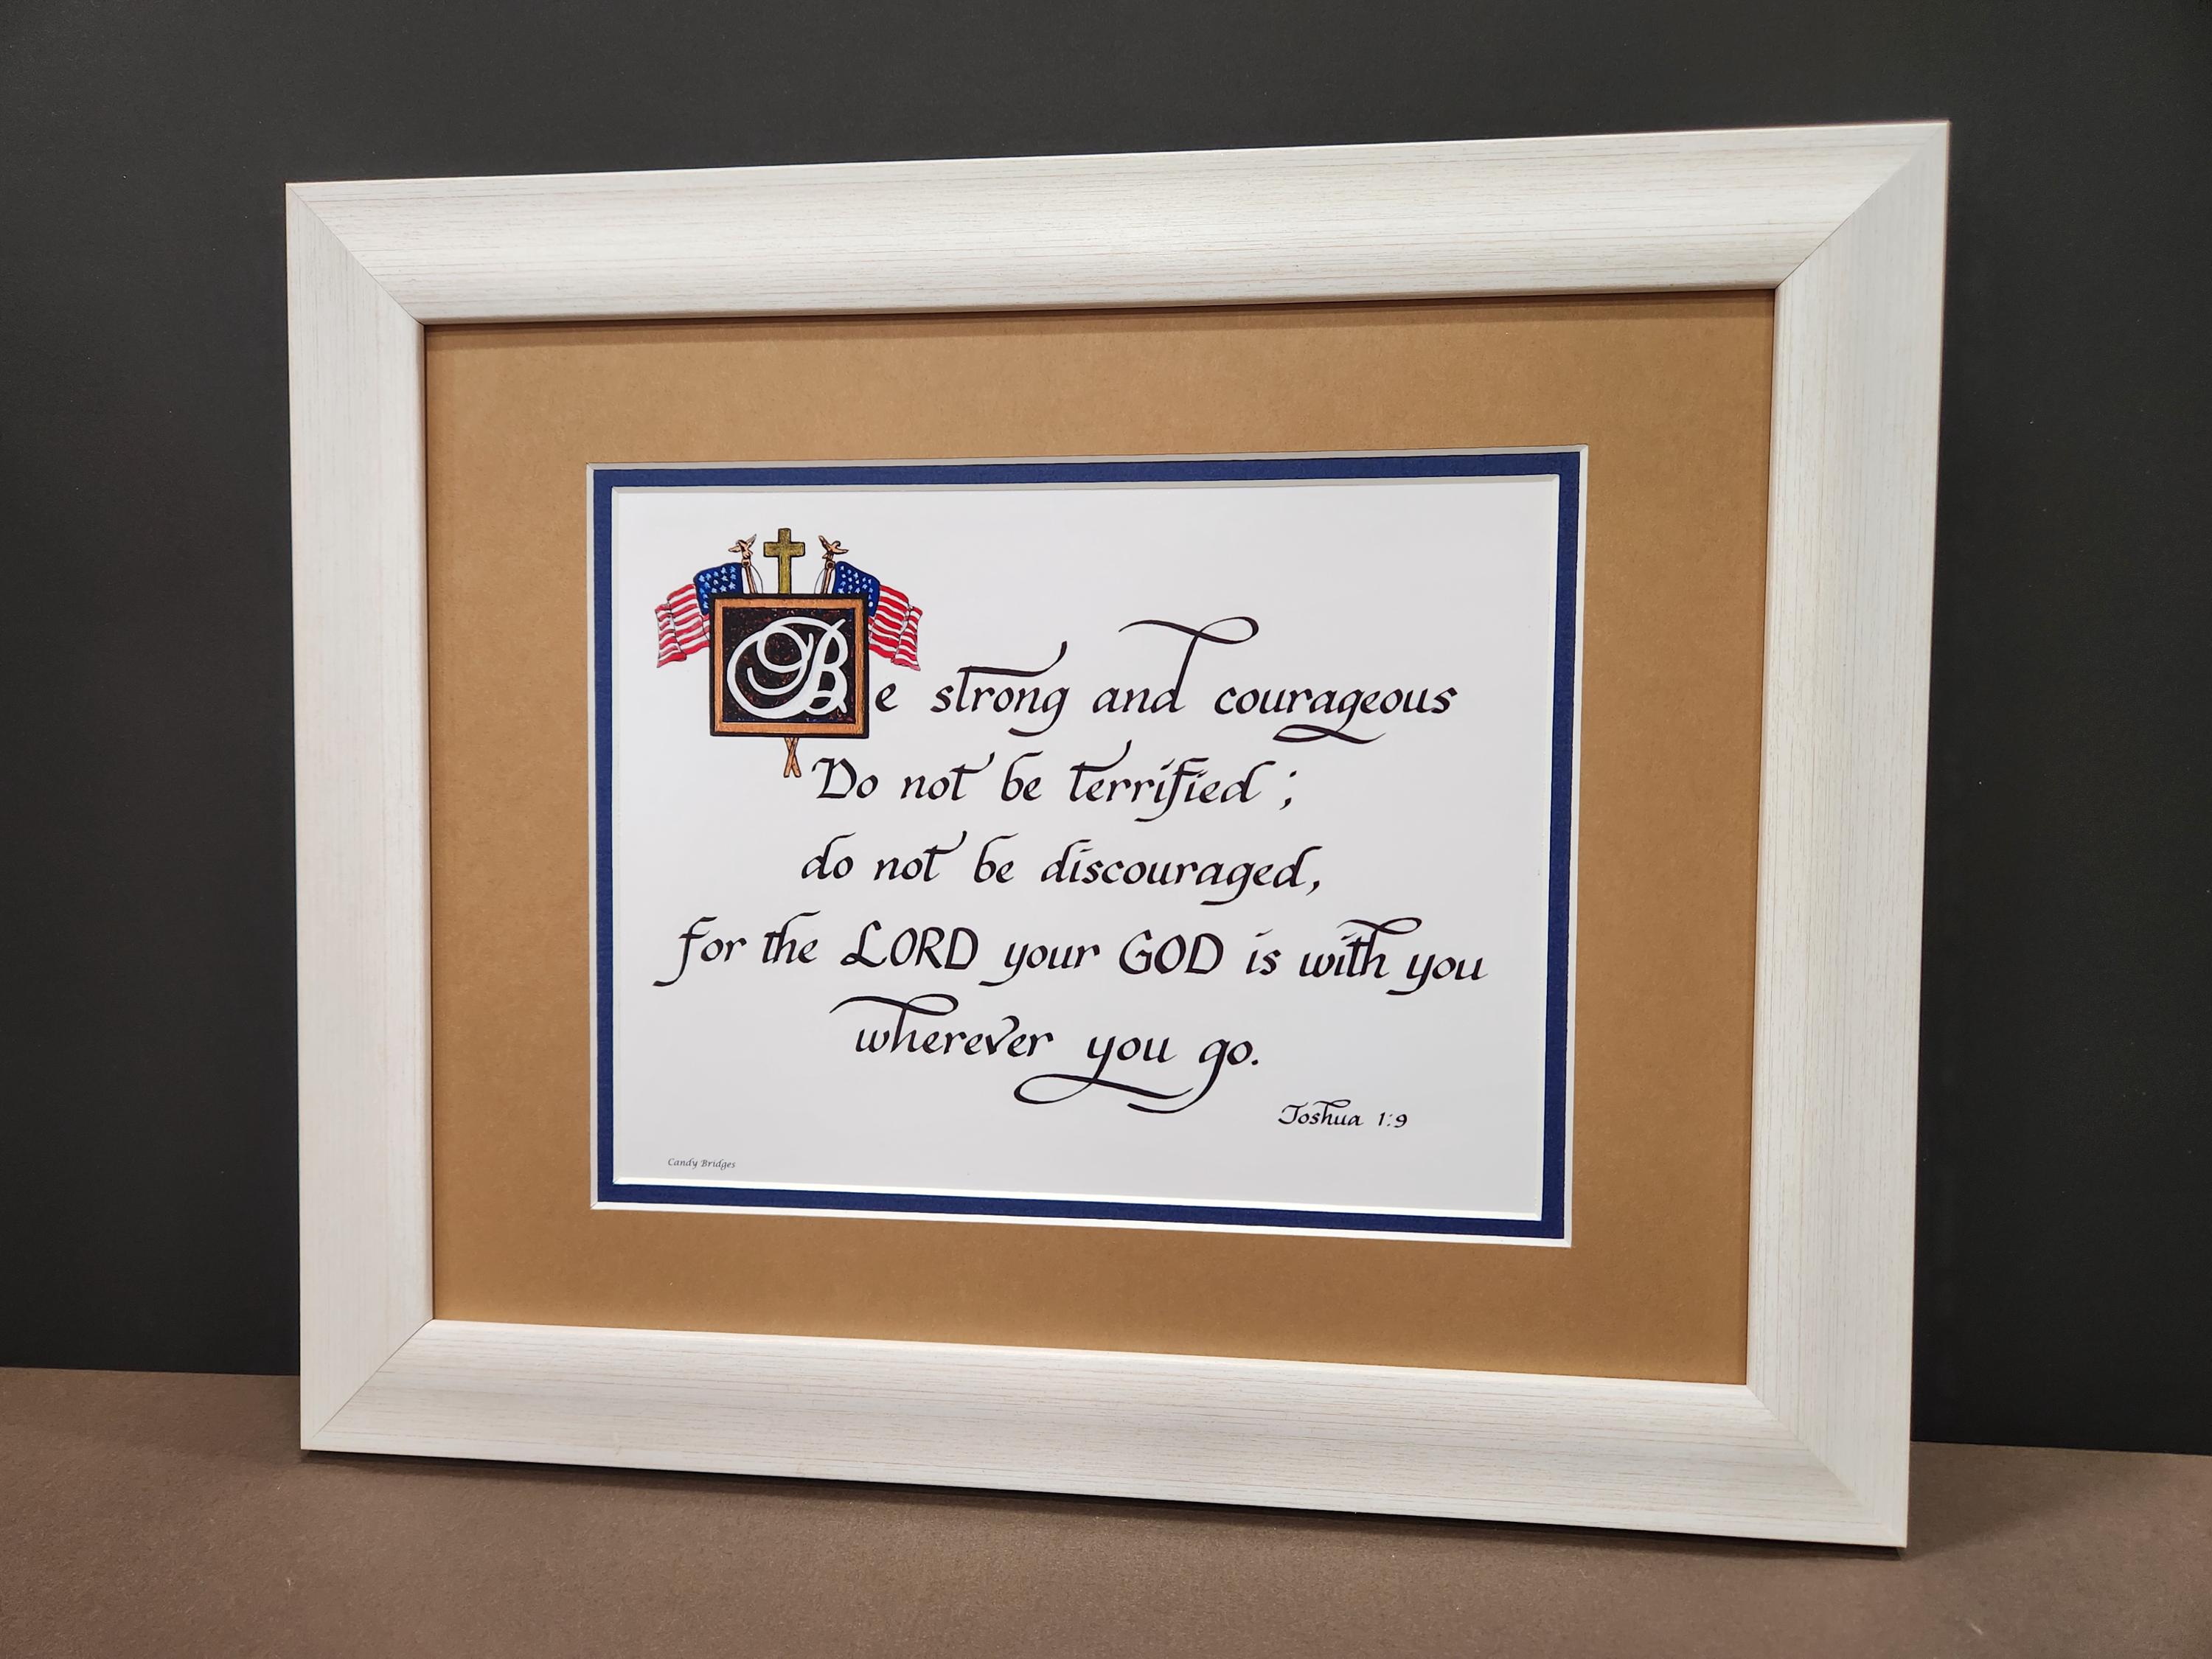 Be strong and courageous
Do not be terrified;
do not be discouraged,
for the LORD your GOD is with you
wherever you go.
Joshua 1:9
Candy Bridges